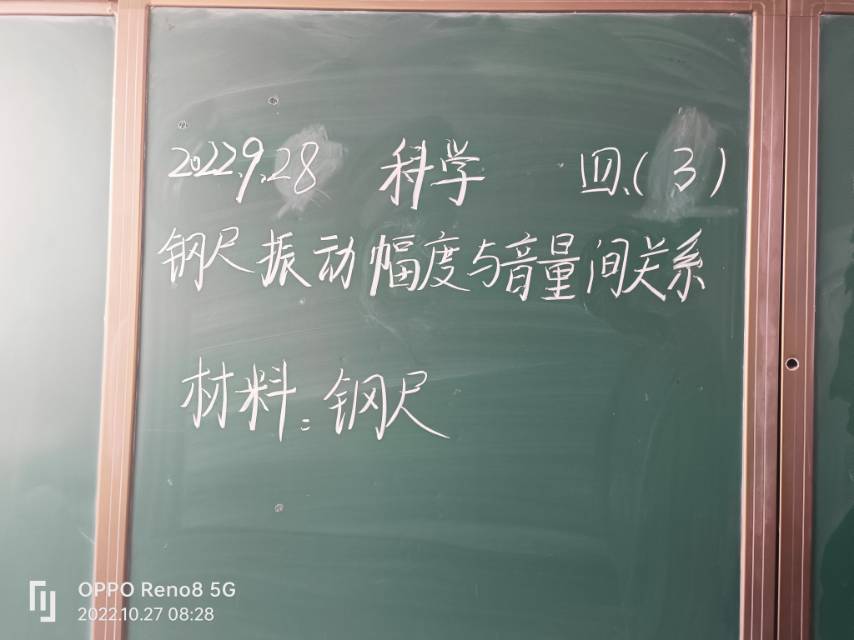 2022.9.28 科学 四.(3)
钢尺振动幅度与音量间关系
材料:钢尺
OPPO Reno8 5G
2022.10.27 08:28